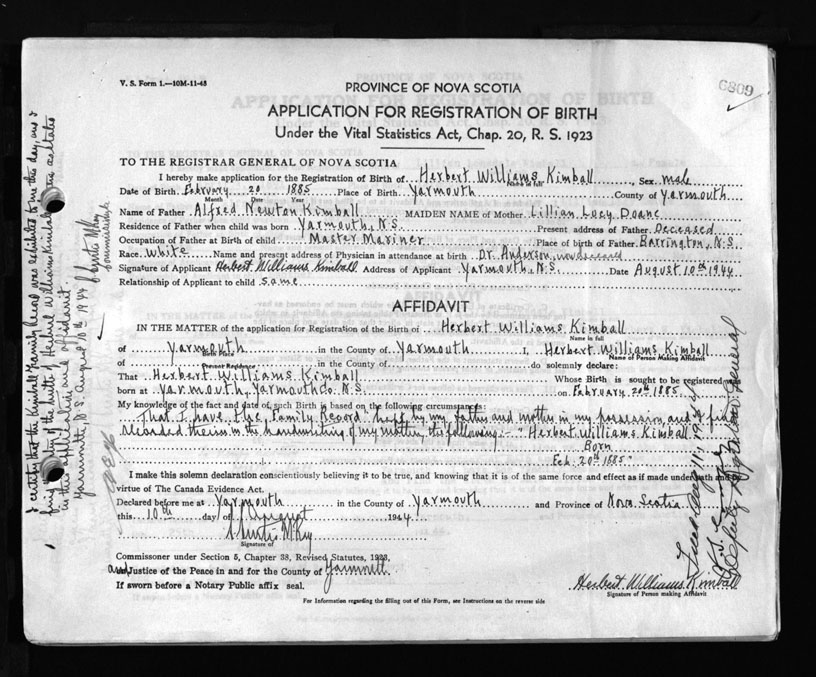 6809
V. S. Form 1.—10M-11-43
PROVINCE OF NOVA SCOTIA
APPLICATION FOR REGISTRATION OF BIRTH
Under the Vital Statistics Act, Chap. 20, R. S. 1923
TO THE REGISTRAR GENERAL OF NOVA SCOTIA
I hereby make application for the Registration of Birth of Herbert Williams Kimball, Sex male
Name in full
Date of Birth February 20 1885 Place of Birth Yarmouth County of Yarmouth
Month Date Year
Name of Father Alfred Newton Kimball MAIDEN NAME of Mother Lillian Lucy Doane
Residence of Father when child was born Yarmouth, N.S. Present address of Father Deceased
Occupation of Father at Birth of child Master Mariner Place of birth of Father Barrington, N.S.
Race White Name and present address of Physician in attendance at birth Dr. Anderson, now deceased
Signature of Applicant Herbert Williams Kimball Address of Applicant Yarmouth, N.S. Date August 10th 1944
Relationship of Applicant to child same
AFFIDAVIT
IN THE MATTER of the application for Registration of the Birth of Herbert Williams Kimball
Name in full
of Yarmouth in the County of Yarmouth I, Herbert Williams Kimball
Birth Place Name of Person Making Affidavit
of in the County of do solemnly declare:
Present Residence
That Herbert Williams Kimball Whose Birth is sought to be registered was
born at Yarmouth, Yarmouth Co. N.S. on February 20th 1885
My knowledge of the fact and date of such Birth is based on the following circumstances:
That I have the Family Record kept by my father and mother in my possession and I find
recorded therein in the handwriting of my mother, the following:- "Herbert Williams Kimball
Born
Feb. 20th 1885"
I make this solemn declaration conscientiously believing it to be true, and knowing that it is of the same force and effect as if made under oath and
virtue of The Canada Evidence Act.
Declared before me at Yarmouth in the County of Yarmouth and Province of Nova Scotia
this 10th day of August 1944
Signature of
Commissioner under Section 5, Chapter 38, Revised Statutes, 1923,
and Justice of the Peace in and for the County of Yarmouth
If sworn before a Notary Public affix seal.
Herbert Williams Kimball
Signature of Person making Affidavit
For Information regarding the filling out of this Form, see Instructions on the reverse side
I certify that the Kimball Family Record was exhibited to me this day, and I
find entry of the birth of Herbert Williams Kimball
in this application and affidavit.
Yarmouth, N.S. August 10th 1944
Deputy Registrar General